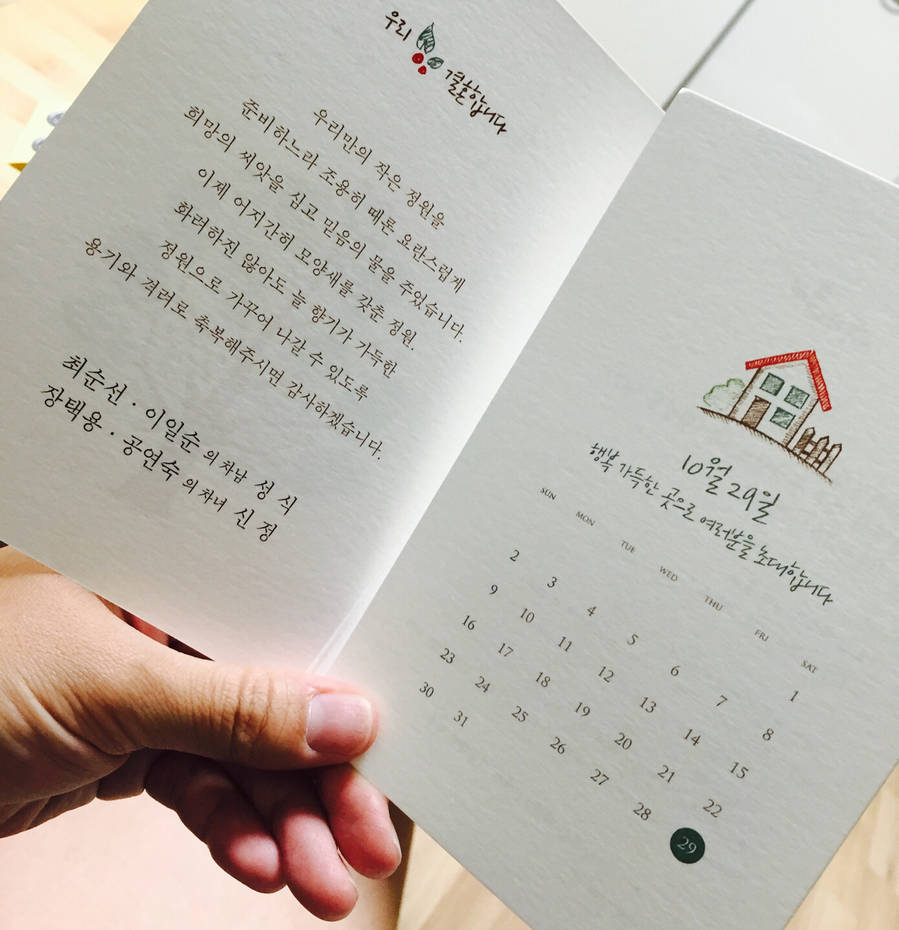 우리
결혼합니다
우리만의 작은 정원을
준비하느라 조용히 때론 요란스럽게
희망의 씨앗을 심고 믿음의 물을 주었습니다.
이제 어지간히 모양새를 갖춘 정원.
화려하진 않아도 늘 향기가 가득한
정원으로 가꾸어 나갈 수 있도록
용기와 격려로 축복해주시면 감사하겠습니다.
최순선 · 이일순 의 차남 성 식
장택용 · 공연숙 의 차녀 신 정
10월 29일
행복 가득한 곳으로 여러분을 초대합니다
SUN MON TUE WED THU FRI SAT
1
2 3 4 5 6 7 8
9 10 11 12 13 14 15
16 17 18 19 20 21 22
23 24 25 26 27 28 29
30 31